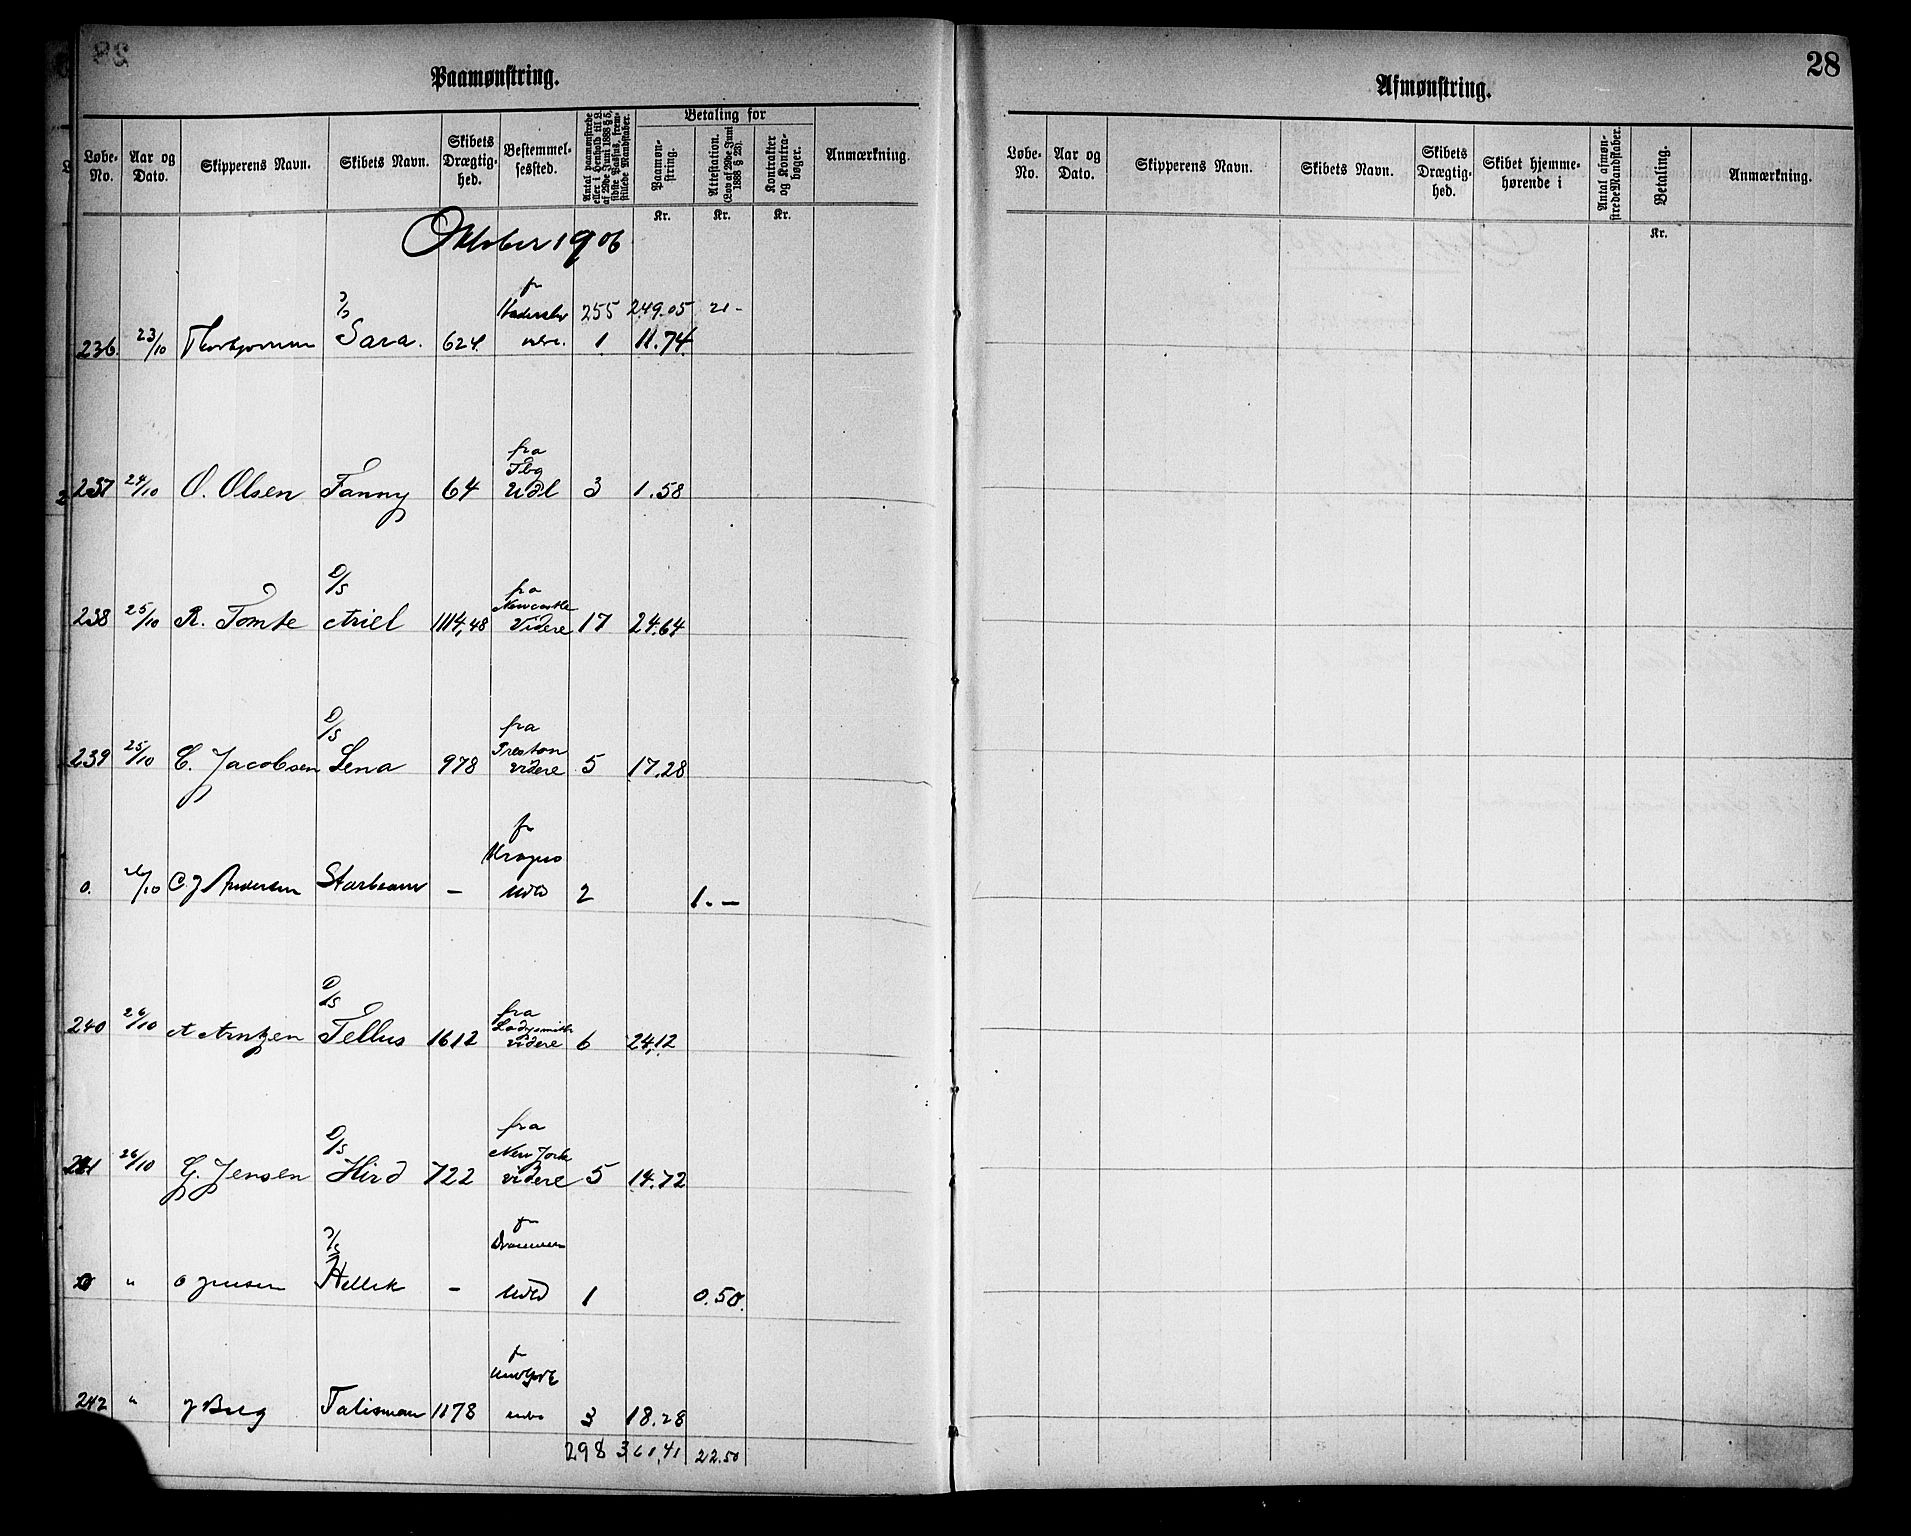 28
Paamønstring.
Løbe-No.
Aar og Dato.
Skipperens Navn.
Skibets Navn.
Skibets Drægtig-hed.
Bestemmel-sessted.
Antal paamønstrede eller i Henhold til L. af 29de Juni 1888 § 5, sidste Passus, frem-stillede Mandskaber.
Betaling for
Paamøn-string.
Attestation. (Lov af 29de Juni 1888 § 23).
Kontrakter og Kontra-bøger.
Anmærkning.
Kr. Kr. Kr.
Oktober 1906
255 249.05 21-
236. 23/10 D/S Sara. 624. 1 11.74
237 24/10 O. Olsen Fanny 64 fra Tbg Udl 3 1.58
238 25/10 R. Tomte D/S Ariel 1114,48 fra Newcastle Videre 17 24.64
239 25/10 C. Jacobsen D/S Lena 978 fra Preston videre 5 17.28
0. 26/10 C. J Andersen – 2 1.–
240 26/10 A Arntzen D/S Tellus 1612 fra Ladysmith videre 6 24,12
241 26/10 G. Jensen D/S Hird 722 fra New York videre 5 14.72
0 " D/S – fr Drammen Udld 1 0.50.
242 " J Berg Talisman 1178 fr 3 18.28
298 361,41 22.50
28
Afmønstring.
Løbe-No.
Aar og Dato.
Skipperens Navn.
Skibets Navn.
Skibets Drægtig-hed.
Skibet hjemme-hørende i
Antal afmøn-strede Mandskaber.
Betaling.
Anmærkning.
Kr.